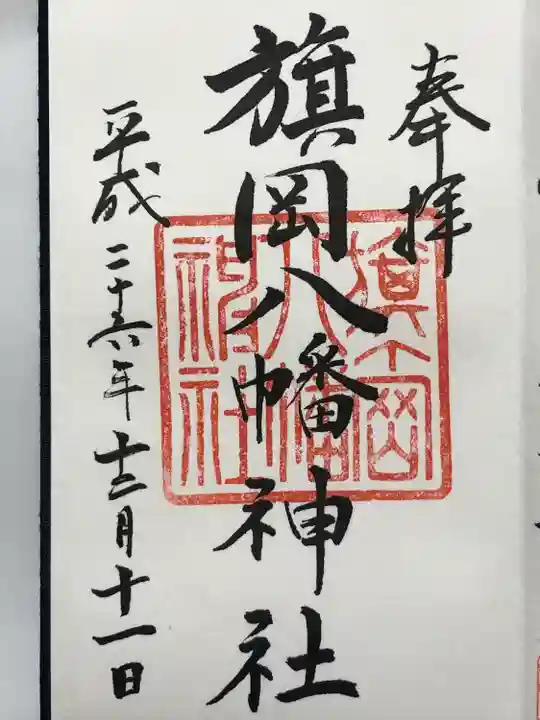 奉拝
旗岡八幡神社
旗岡
八幡
神社
平成二十六年十二月十一日